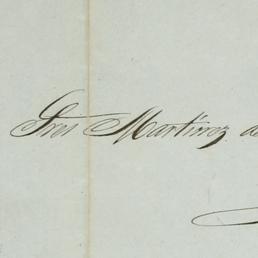 Sres Martinez de